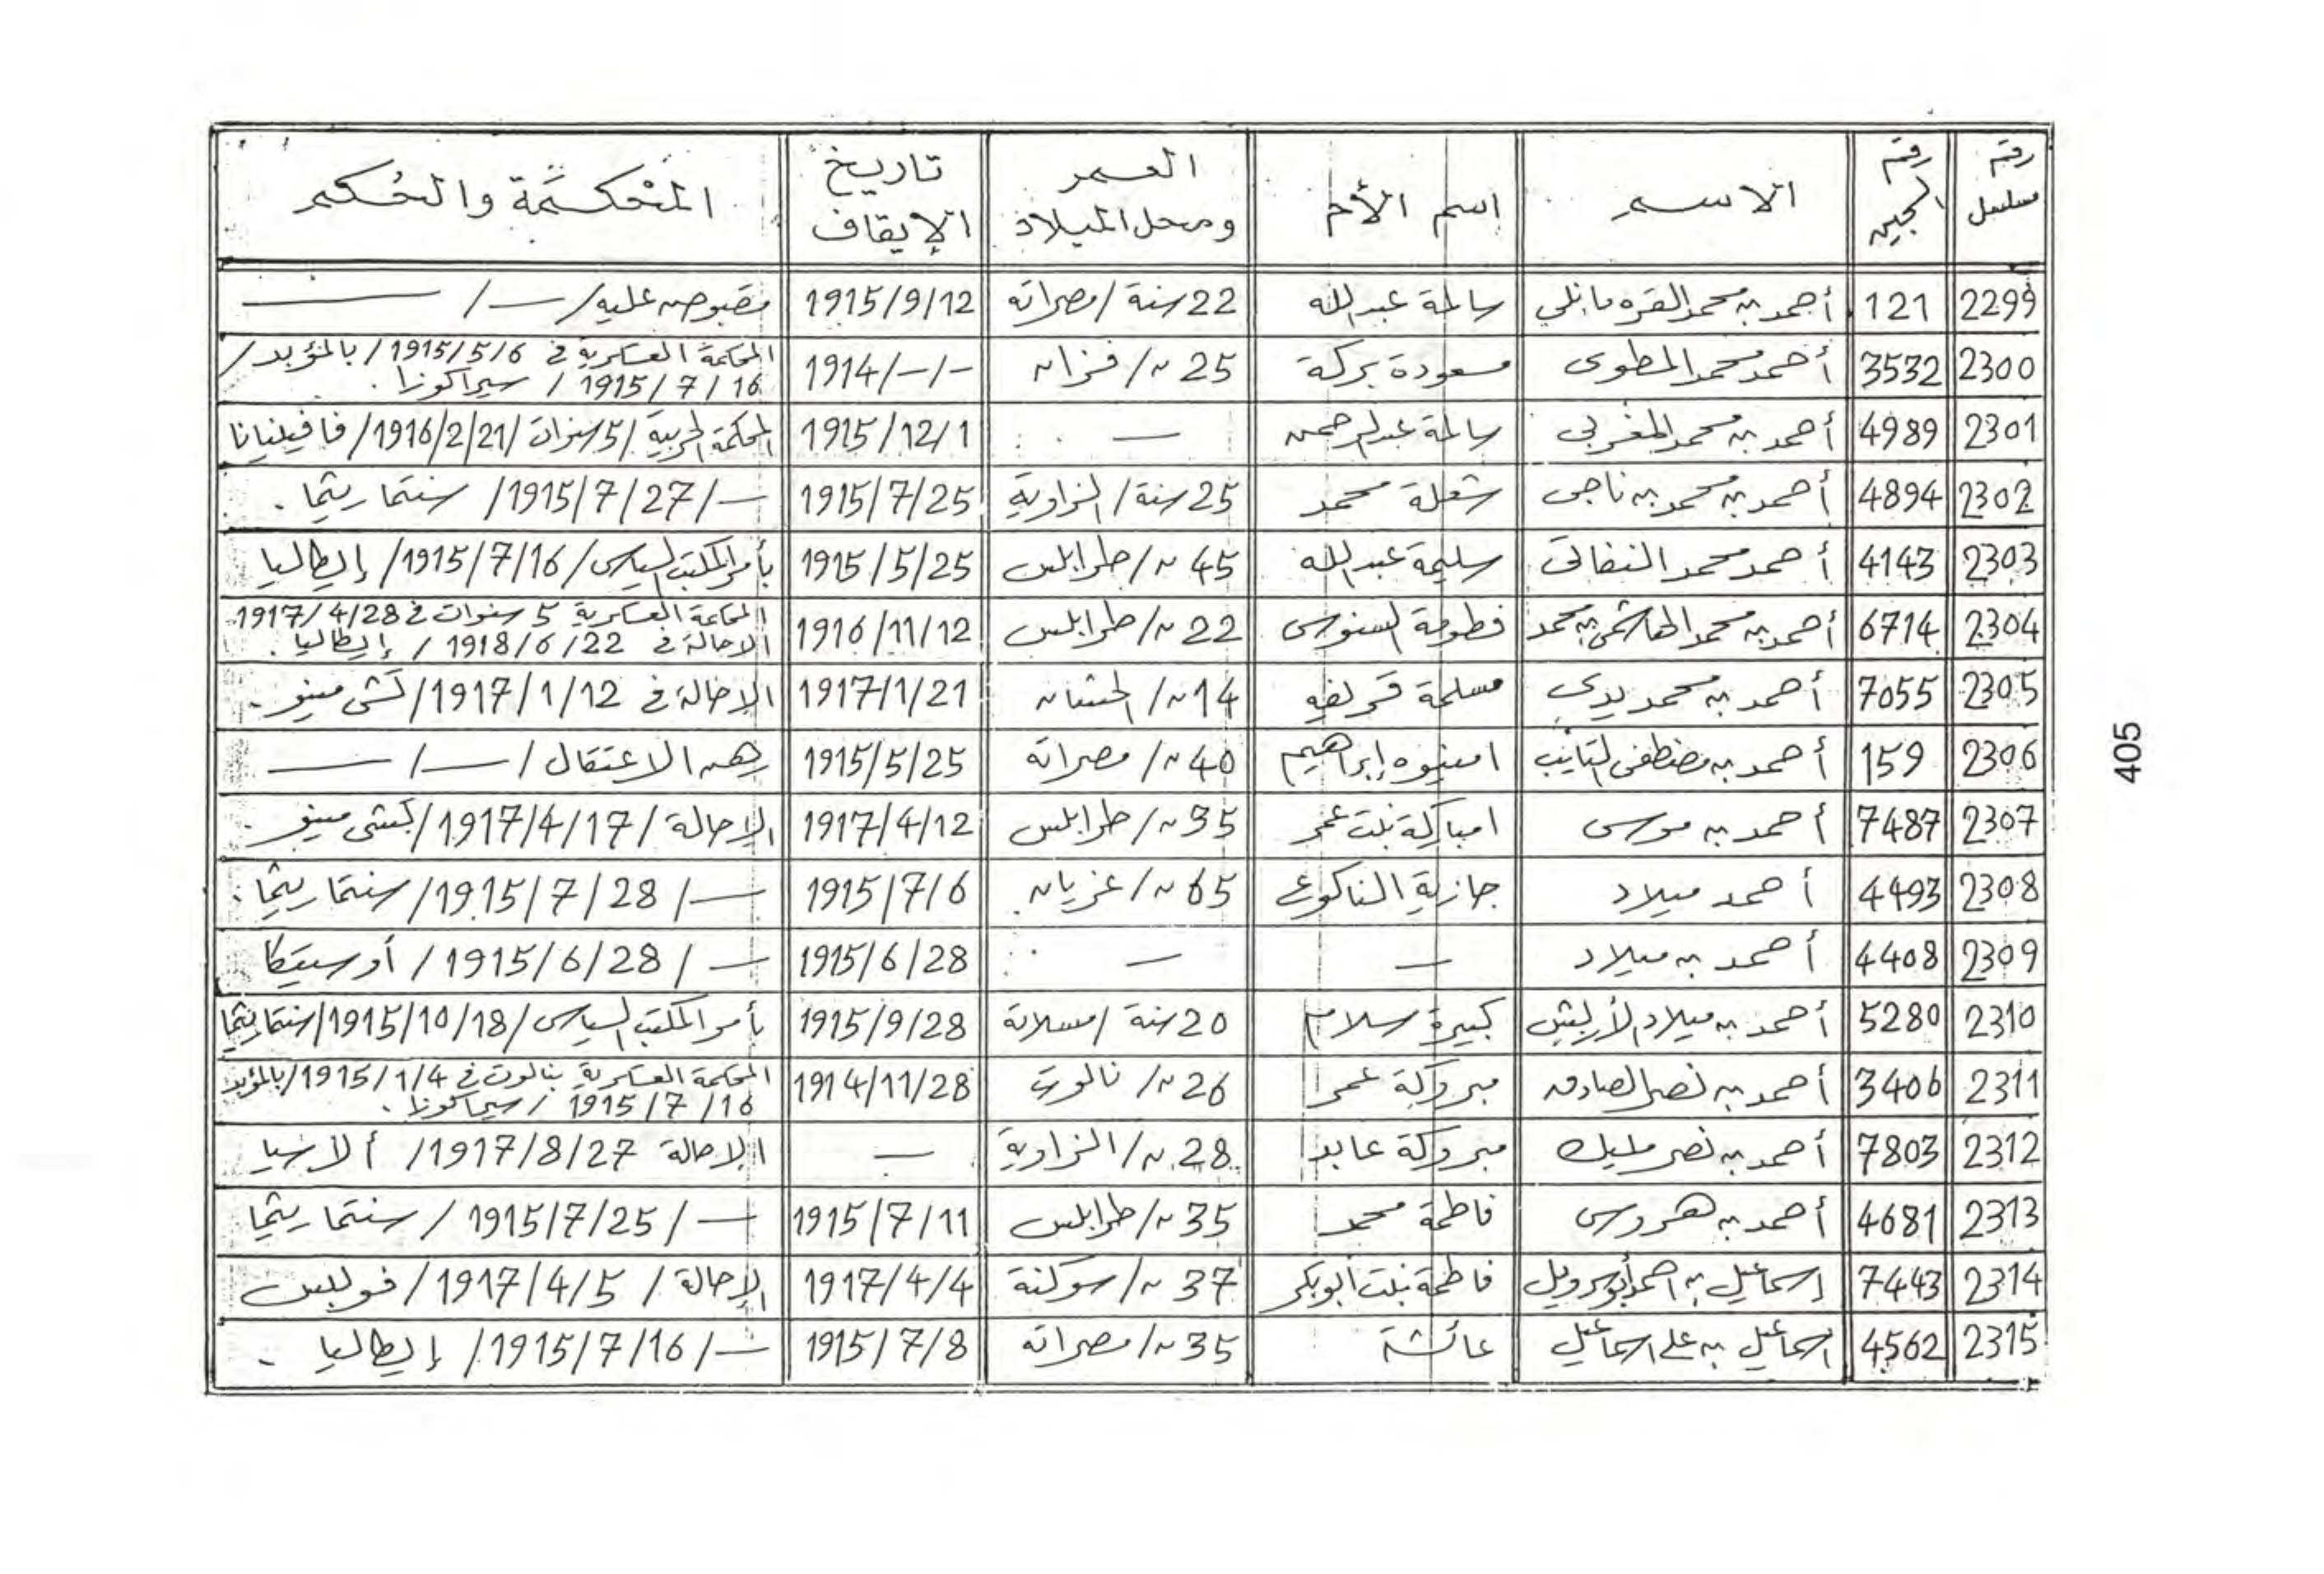 رقم مسلسل | رقم السجين | الاســـم | اسم الأم | العـمـر ومحل الميلاد | تاريخ الإيقاف | المحكمة والحكم
2299 | 121 | أحمد بن محمد القره مانلي | سالمة عبدالله | 22 سنة / مصراته | 1915/9/12 | مقبوض عليه / — / —
2300 | 3532 | أحمد محمد المطوى | مسعودة بركة | 25 " / فزان | 1914/-/- | المحكمة العسكرية في 1915/5/6 / بالمؤبد / 1915/7/16 / سيراكوزا .
2301 | 4989 | أحمد بن محمد المغربي | سالمة عبدالرحمن | — | 1915/12/1 | المحكمة الحربية / 5 سنوات / 1916/2/21 / فافينيانا
2302 | 4894 | أحمد بن محمد بن ناجى | شعلة محمد | 25 سنة / الزاوية | 1915/7/25 | — / 1915/7/27 / سنتماريتما .
2303 | 4143 | أحمد محمد النفاتى | سليمة عبدالله | 45 " / طرابلس | 1915/5/25 | بأمر المكتب السياسى / 1915/7/16 / إيطاليا
2304 | 6714 | أحمد بن محمد الهاشمى بن محمد | فطومة السنوسى | 22 " / طرابلس | 1916/11/12 | المحاكمة العسكرية 5 سنوات في 1917/4/28 الإحالة في 1918/6/22 / إيطاليا .
2305 | 7055 | أحمد بن محمد يدى | مسلمة | 14 " / | 1917/1/21 | الإحالة في 1917/1/12 / كشى مينو .
2306 | 159 | أحمد بن مصطفى التايب | امنيوه إبراهيم | 40 " / مصراته | 1915/5/25 | رهن الاعتقال / — / —
2307 | 7487 | أحمد بن موسى | امباركة بنت عمر | 35 " / طرابلس | 1917/4/12 | الإحالة / 1917/4/17 / كشى مينو .
2308 | 4493 | أحمد ميلاد | جازية الناكوع | 65 " / غريان . | 1915/7/6 | — / 1915/7/28 / سنتماريتما .
2309 | 4408 | أحمد بن ميلاد | — | — | 1915/6/28 | — / 1915/6/28 / أوستيكا
2310 | 5280 | أحمد بن ميلاد | كبيرة سلام | 20 سنة / مسلاتة | 1915/9/28 | بأمر المكتب السياسى / 1915/10/18 / سنتماريتما
2311 | 3406 | أحمد بن نصر الصادق | مبروكة عمر | 26 " / نالوت | 1914/11/28 | المحكمة العسكرية بنالوت في 1915/1/4 / بالمؤبد 1915/7/16 / سيراكوزا .
2312 | 7803 | أحمد بن نصر مليك | مبروكة عابد | 28 " / الزاوية | — | الإحالة 1917/8/27 / ألاسيا
2313 | 4681 | أحمد بن هروس | فاطمة محمد | 35 " / طرابلس | 1915/7/11 | — / 1915/7/25 / سنتماريتما
2314 | 7443 | إسماعيل بن احمد أبوسرويل | فاطمة بنت أبوبكر | 37 " / سوكنة | 1917/4/4 | الإحالة / 1917/4/5 / فوليس
2315 | 4562 | اسماعيل بن على اسماعيل | عائشة | 35 " / مصراته | 1915/7/8 | — / 1915/7/16 / إيطاليا .
405